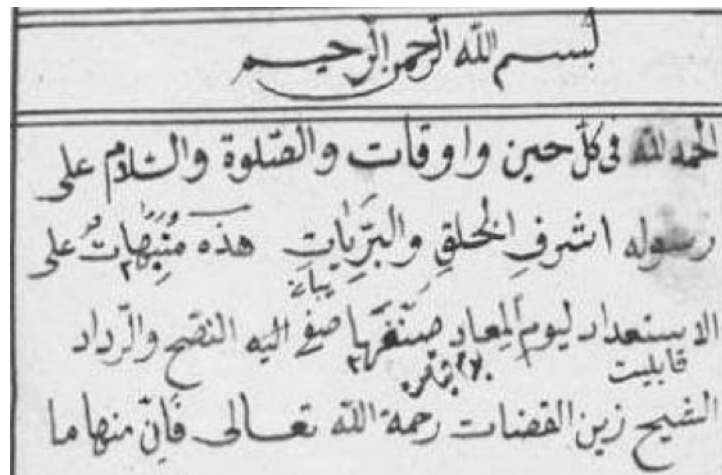 بسم الله الرحمن الرحيم
الحمد لله فى كل حين واوقات والصلوة والسلام على
رسوله اشرف الخلق والبريات هذه منبهات على
الاستعداد ليوم المعاد صنفها اليه النصح والرداد
قابليت
الشيخ زين القضات رحمة الله تعالى فان منها ما